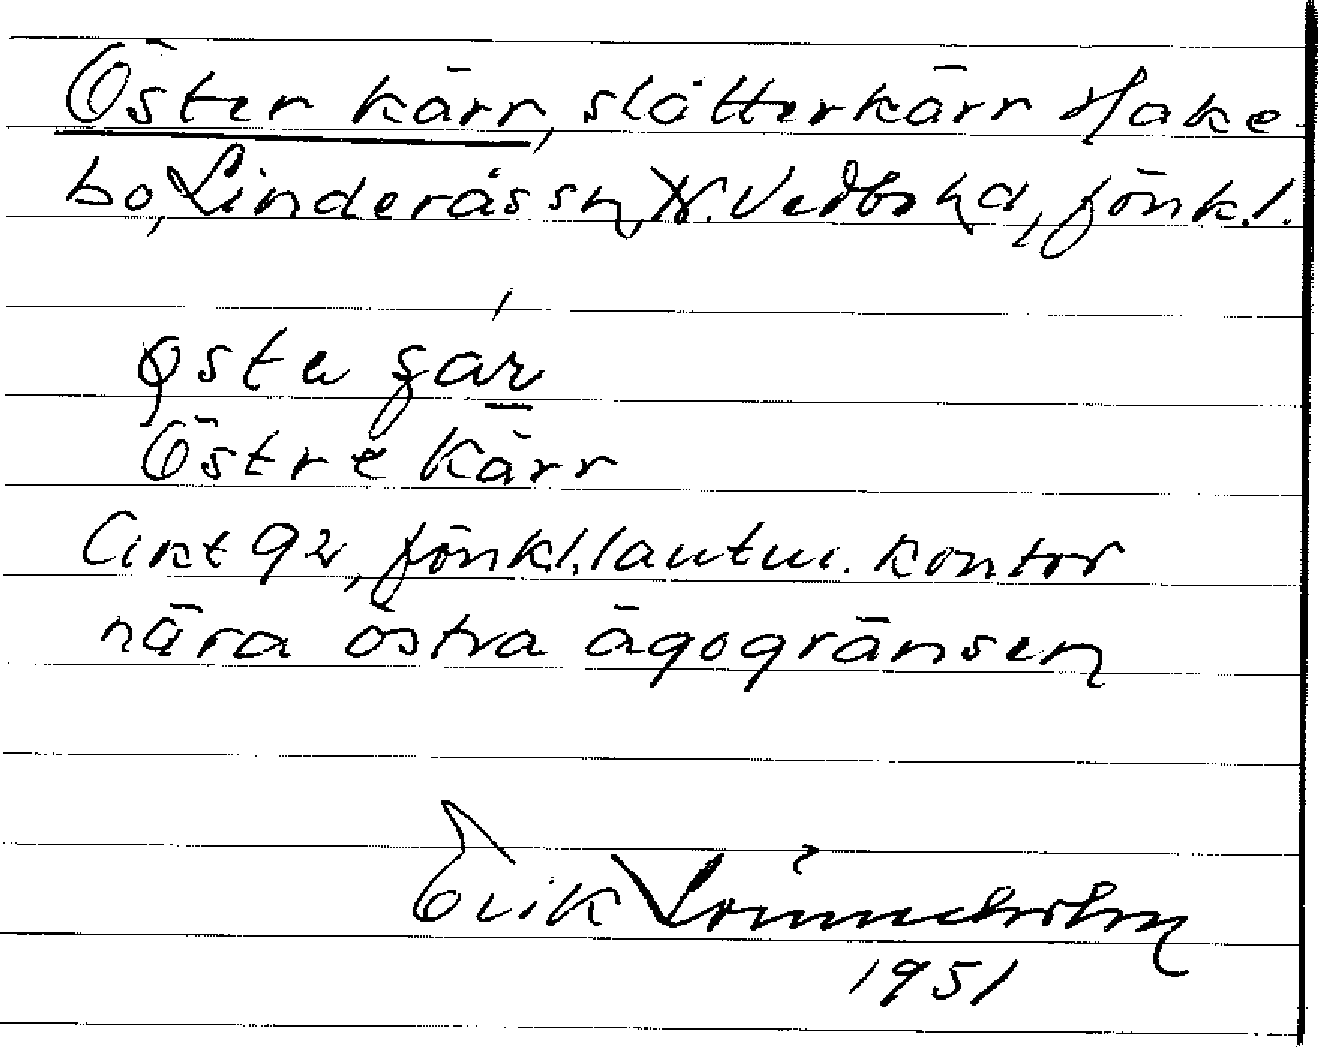 Öster kärr, slåtterkärr Hake-
bo, Linderås sn, N. Vedbo hd, Jönk. l.
Östre Kärr
Akt 92, Jönk. l. lantm. kontor
nära östra ägogränsen
Erik
1951